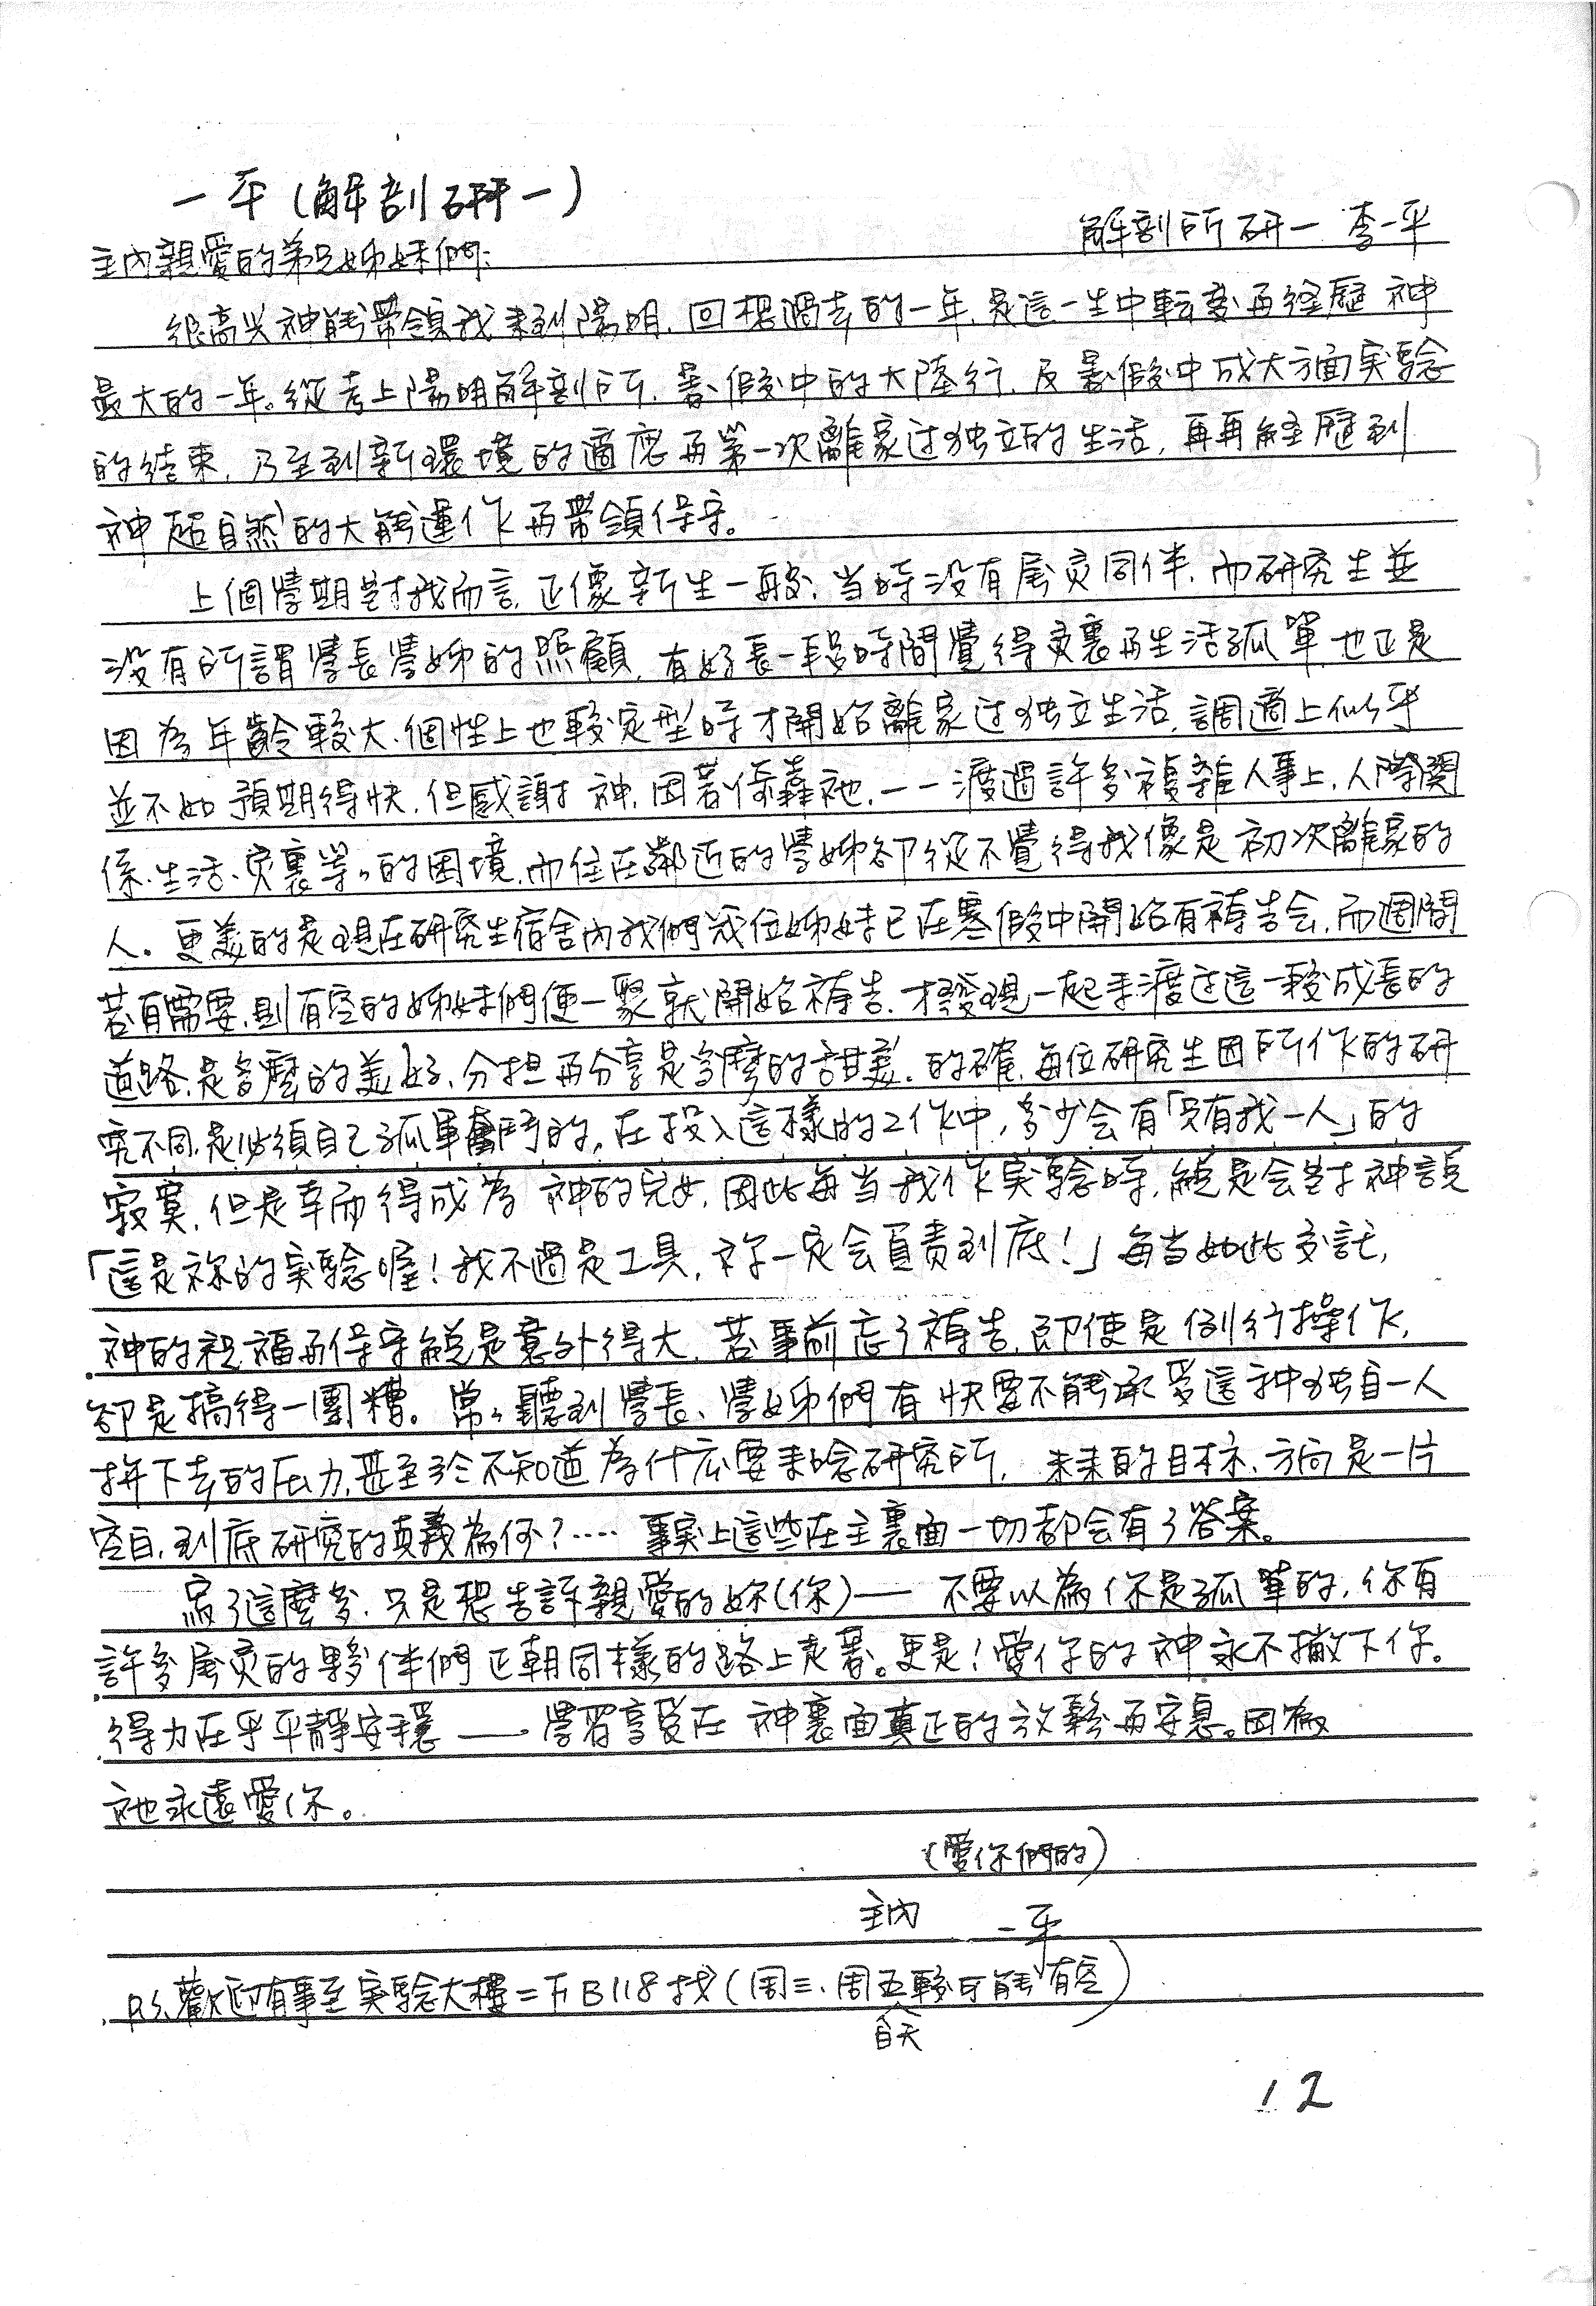 一平(解剖研一)
解剖所研一 李一平
主內親愛的弟兄姊妹們:
很高兴神能帶領我來到陽明.回想過去的一年,是這一生中転变再経歷 神
最大的一年。從考上陽明解剖所.暑假中的大陸行.及暑假中成大方面実驗
的結束,乃至到新環境的適應再第一次離家过独立的生活,再再経歷到
神超自然的大能運作再帶領保守。
上個學期對我而言.正像新生一般.当時没有屬灵同伴.而研究生並
没有所謂學長學姊的照顧.有好長一段時間覺得灵裏再生活孤單.也正是
因為年齡較大.個性上也較定型時才開始離家过独立生活.調適上似乎
並不如預期得快.但感謝神.因著倚靠祂.一一渡過許多複雜人事上.人際関
係.生活.灵裏等..的困境.而住在鄰近的學姊卻從不覺得我像是初次離家的
人。更美的是現在研究生宿舍內我們幾位姊妹已在寒假中開始有禱告会.而週間
若有需要.則有空的姊妹們便一聚就開始禱告.才發現一起手渡过這一段成長的
道路.是多麼的美好.分担再分享是多麼的甜美.的確.每位研究生因所作的研
究不同.是必須自己孤軍奮鬥的.在投入這樣的工作中,多少会有「只有我一人」的
寂寞.但是幸而得成為 神的兒女.因此每当我作実驗時.総是会對神說
「這是祢的実驗喔!我不過是工具.祢一定会負責到底!」每当如此交託,
神的祝福再保守総是意外得大.若事前忘了禱告.即使是例行操作,
卻是搞得一團糟。常々聽到學長、學姊們有快要不能承受這种独自一人
拼下去的压力.甚至於不知道為什広要来唸研究所. 未来的目标.方向是一片
空白.到底研究的真義為何?.... 事実上這些在主裏面一切都会有了答案。
寫了這麼多.只是想告訴親愛的妳(你)— 不要以為你是孤單的.你有
許多屬灵的夥伴們正朝同樣的路上走著。更是!愛你的神永不撇下你。
得力在乎平靜安穩 —— 學習享受在 神裏面真正的放鬆再安息。因為
祂永遠愛你。
(愛你們的)
主內 一平
P.S.歡迎有事至実驗大樓=下B118找(周三.周五較可能有空)
白天
12